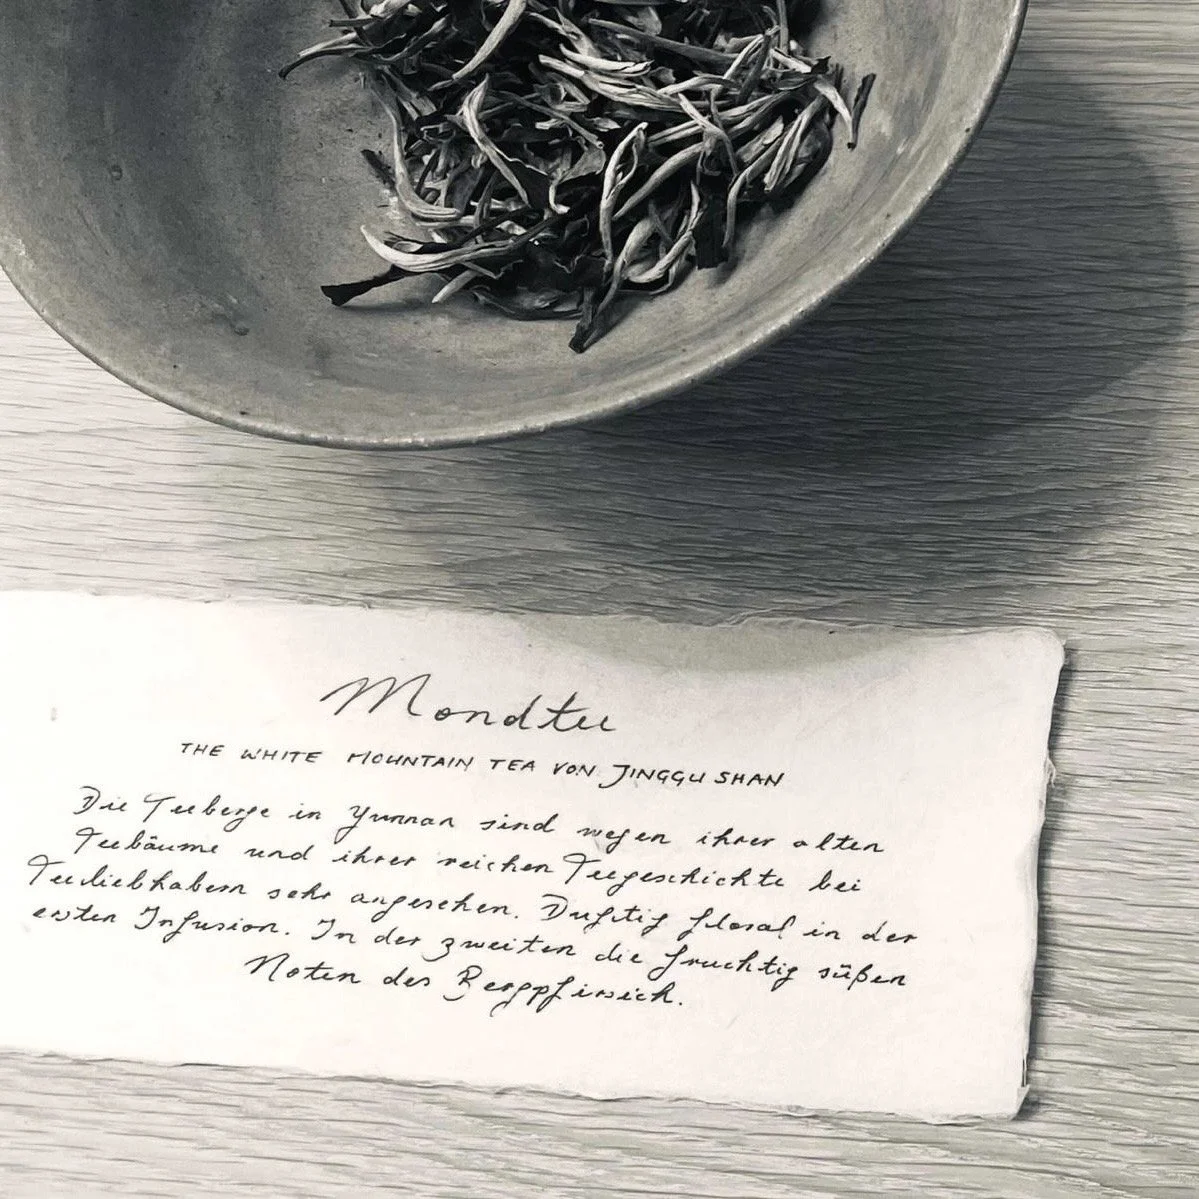 Mondtee
THE WHITE MOUNTAIN TEA VON JINGGU SHAN
Die Teeberge in Yunnan sind wegen ihrer alten
Teebäume und ihrer reichen Teegeschichte bei
Teeliebhabern sehr angesehen. Duftig floral in der
ersten Infusion. In der zweiten die fruchtig süßen
Noten des Bergpfirsich.